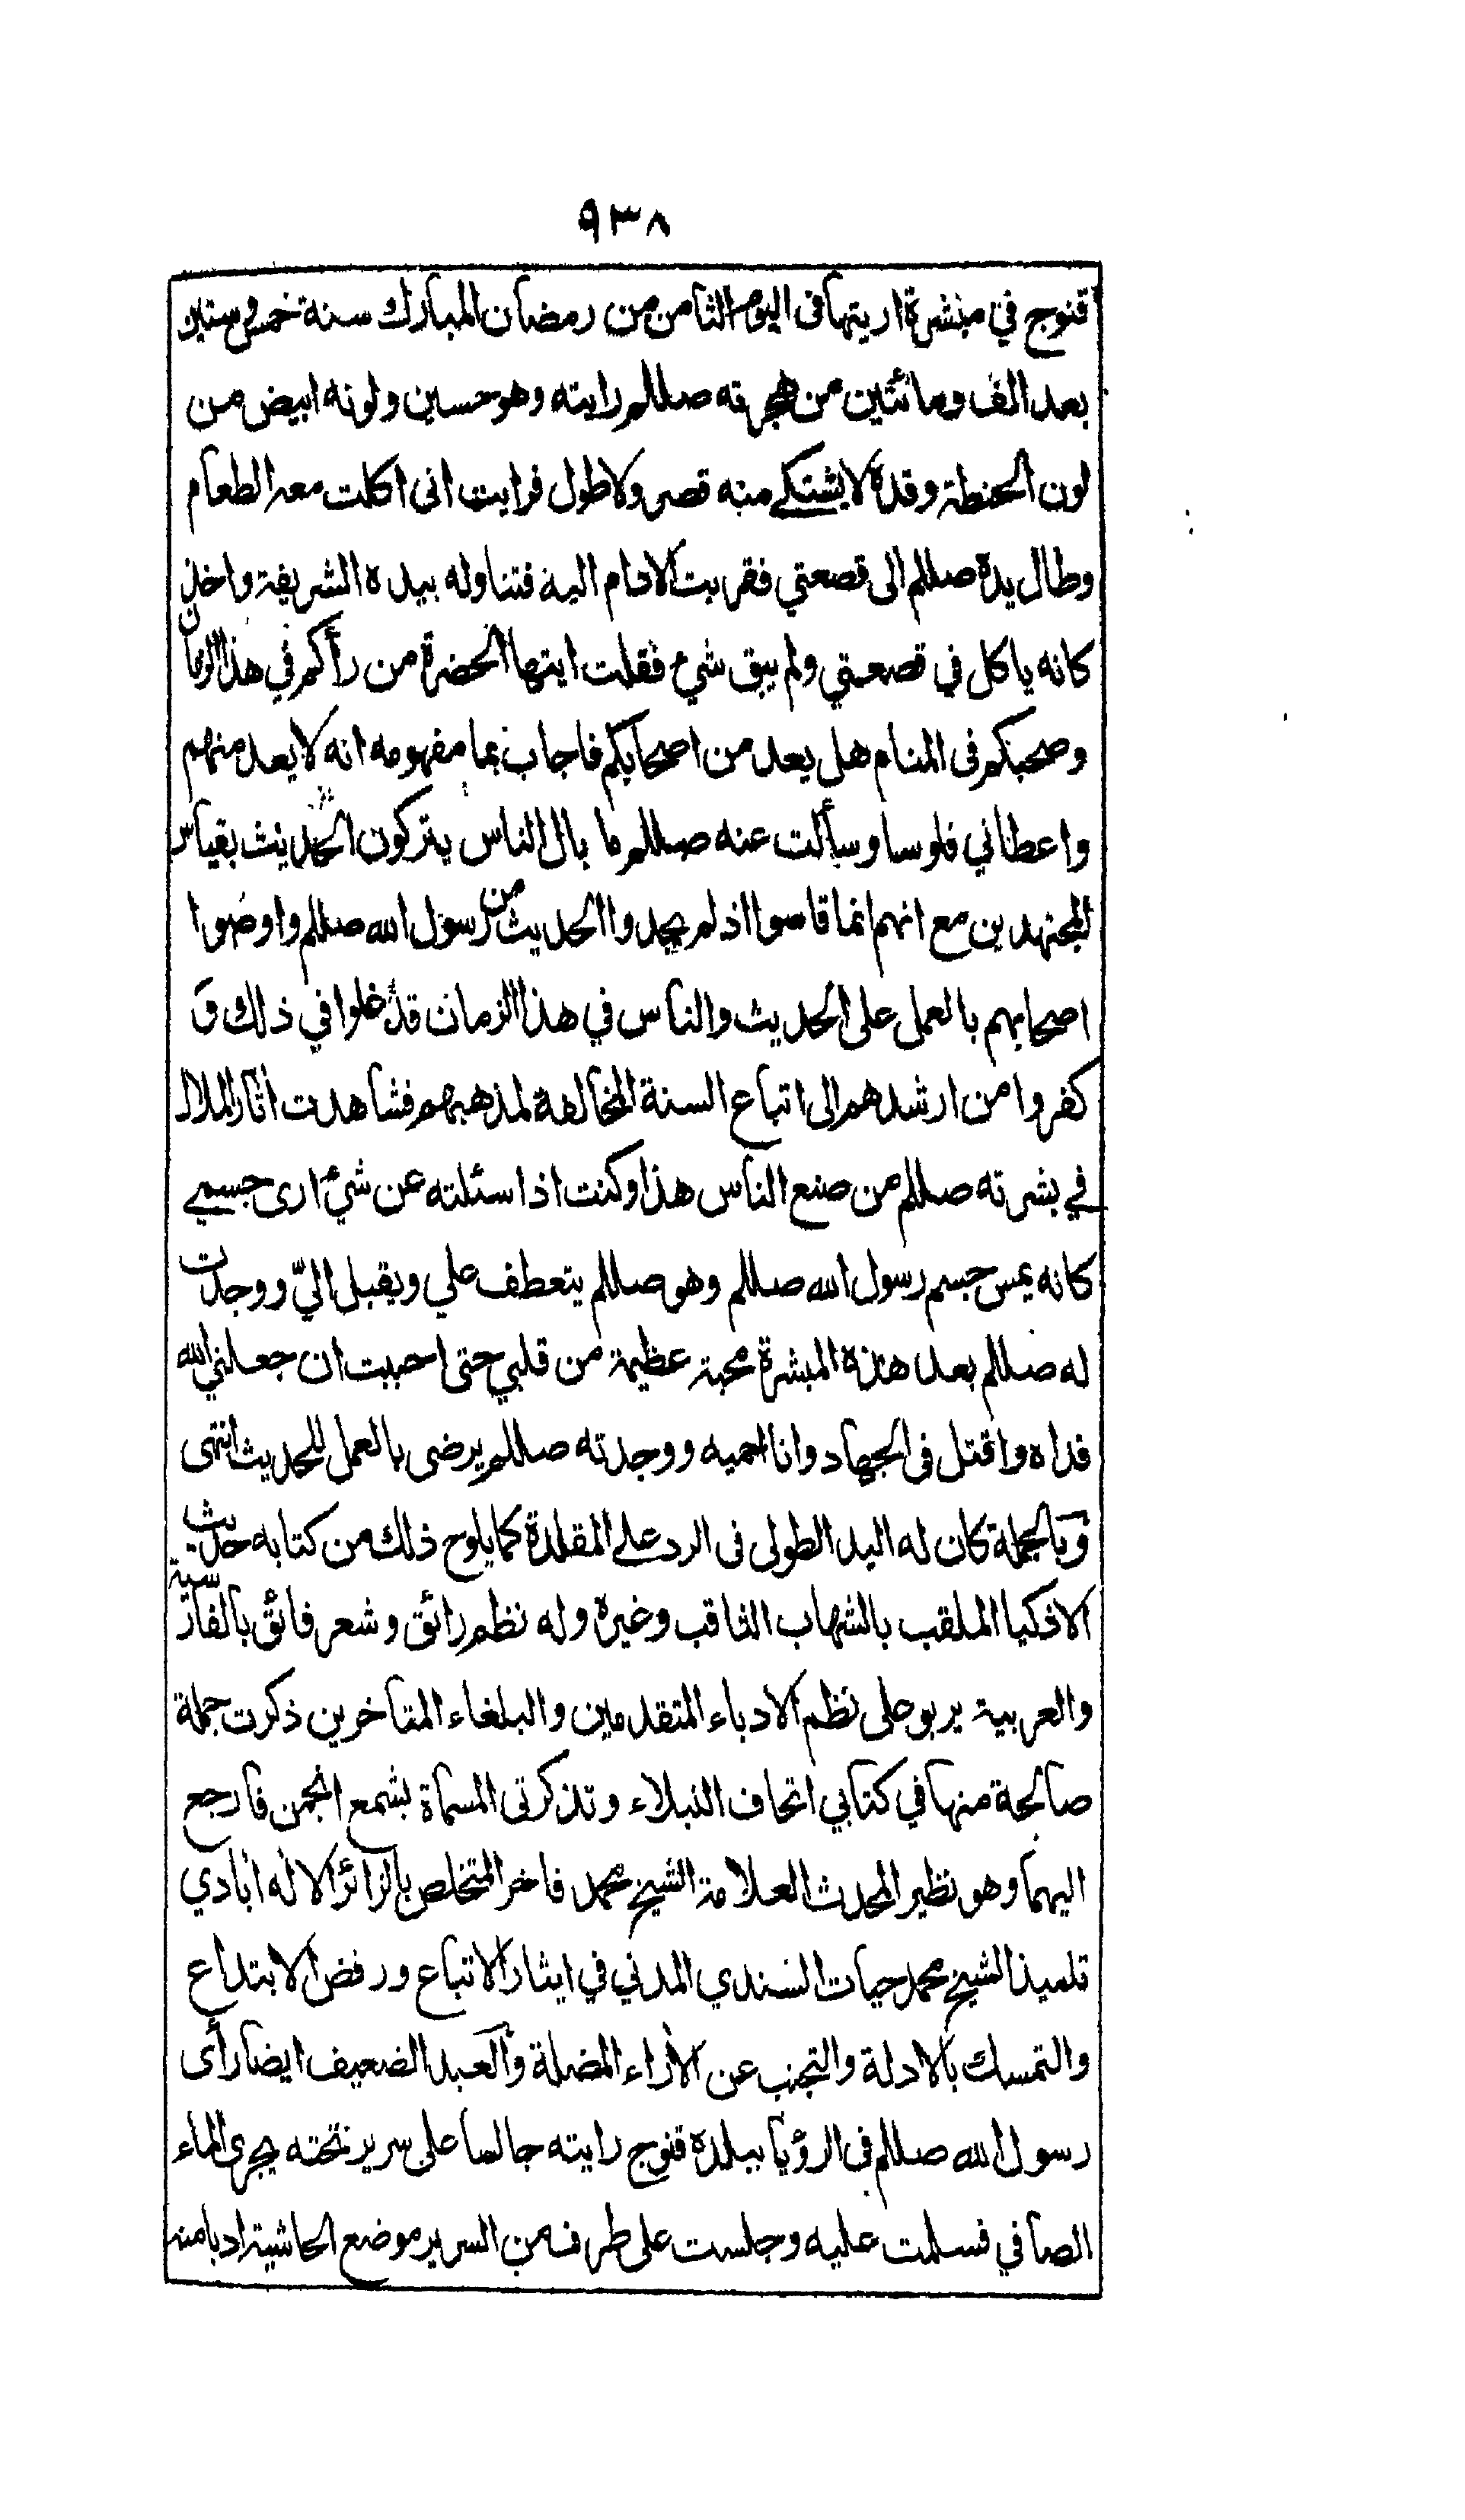 ٩٣٨
قنوج في مبشرة اريتها فى اليوم الثامن من رمضان المبارك سنة خمس وستين
بعد الف ومائتين من هجرته صللم رايته وهو حسين ولونه ابيض من
لون الحنطة وقده لا يشتكے منه قصر ولا طول فرايت انى اكلت معه الطعام
وطال يده صللم الى قصعتي فقربت الادام اليه فتناوله بيده الشريفة واخذ
كانه ياكل في قصعتي ولم يبق شيء فقلت ايتها الحضرة من رأكم في هذا الزمان
وصحبكم فى المنام هل يعد من اصحابكم فاجاب بما مفهومه انه لا يعد منهم
واعطاني فلوسا وسألت عنه صللم ما بال الناس يتركون الحديث بقياس
المجتهدين مع انهم انما قاسوا اذ لم يجدوا الحديث من رسول الله صللم واوصوا
اصحابهم بالعمل على الحديث والناس في هذا الزمان قد غلوا في ذلك و
كفروا من ارشدهم الى اتباع السنة المخالفة لمذهبهم فشاهدت اثار الملال
في بشرته صللم من صنع الناس هذا وكنت اذا سئلته عن شيء ارى جسمے
كانه يمس جسم رسول الله صللم وهو صللم يتعطف علي ويقبل اليّ ووجدت
له صللم بعد هذه المبشرة محبة عظيمة من قلبي حتى احببت ان جعلني الله
فداه واقتل فى الجهاد وانا احميه ووجدته صللم يرضى بالعمل للحديث انتهى
وبالجملة كان له اليد الطولى فى الرد علے المقلدة كما يلوح ذلك من كتابه حديث
الاذكيا الملقب بالشهاب الثاقب وغيره وله نظم رائق وشعر فائق بالفارسية
والعربية يربو على نظم الادباء المتقدمين والبلغاء المتاخرين ذكرت جملة
صالحة منها في كتابي اتحاف النبلاء وتذكرتى المسماة بشمع انجمن فارجع
اليهما وهو نظير المحدث العلامة الشيخ محمد فاخر المتخلص بالزائر الاله ابادي
تلميذ الشيخ محمد حيات السندي المدني في ايثار الاتباع ورفض الابتداع
والتمسك بالادلة والتجنب عن الاراء المضلة والعبد الضعيف ايضا رأى
رسول الله صللم فى الرؤيا ببلدة قنوج رايته جالسا على سرير تحته يجرى الماء
الصافي فسلمت عليه وجلست على طرف من السرير موضع الحاشية ادبا منه